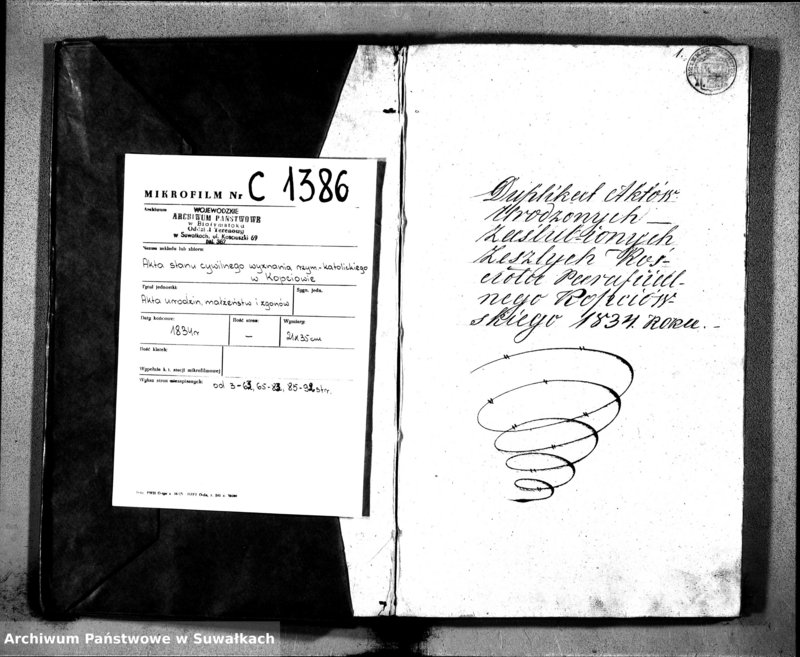 MIKROFILM Nr C 1386
Archiwum
WOJEWÓDZKIE
ARCHIWUM PAŃSTWOWE
w Białymstoku
Oddział Terenowy
w Suwałkach, ul. Kościuszki 69
Nazwa zespołu lub zbioru
Akta stanu cywilnego wyznania rzym-katolickiego
w Kopciowie
Tytuł jednostki
Sygn. jedn.
Akta urodzin, małżeństw i zgonów
Daty końcowe:
Ilość stron:
Wymiary:
1834 r
—
21x35 cm
Ilość klatek:
Wypełnia k. t. stacji mikrofilmowej
Wykaz stron niezapisanych: od 3-63, 65-83, 85-92 str.
1.
Duplikat Aktów
Urodzonych
Zaślubionych
Zeszłych Koś-
cioła Parafiial-
nego Kopciów-
skiego 1834. Roku. –
Archiwum Państwowe w Suwałkach